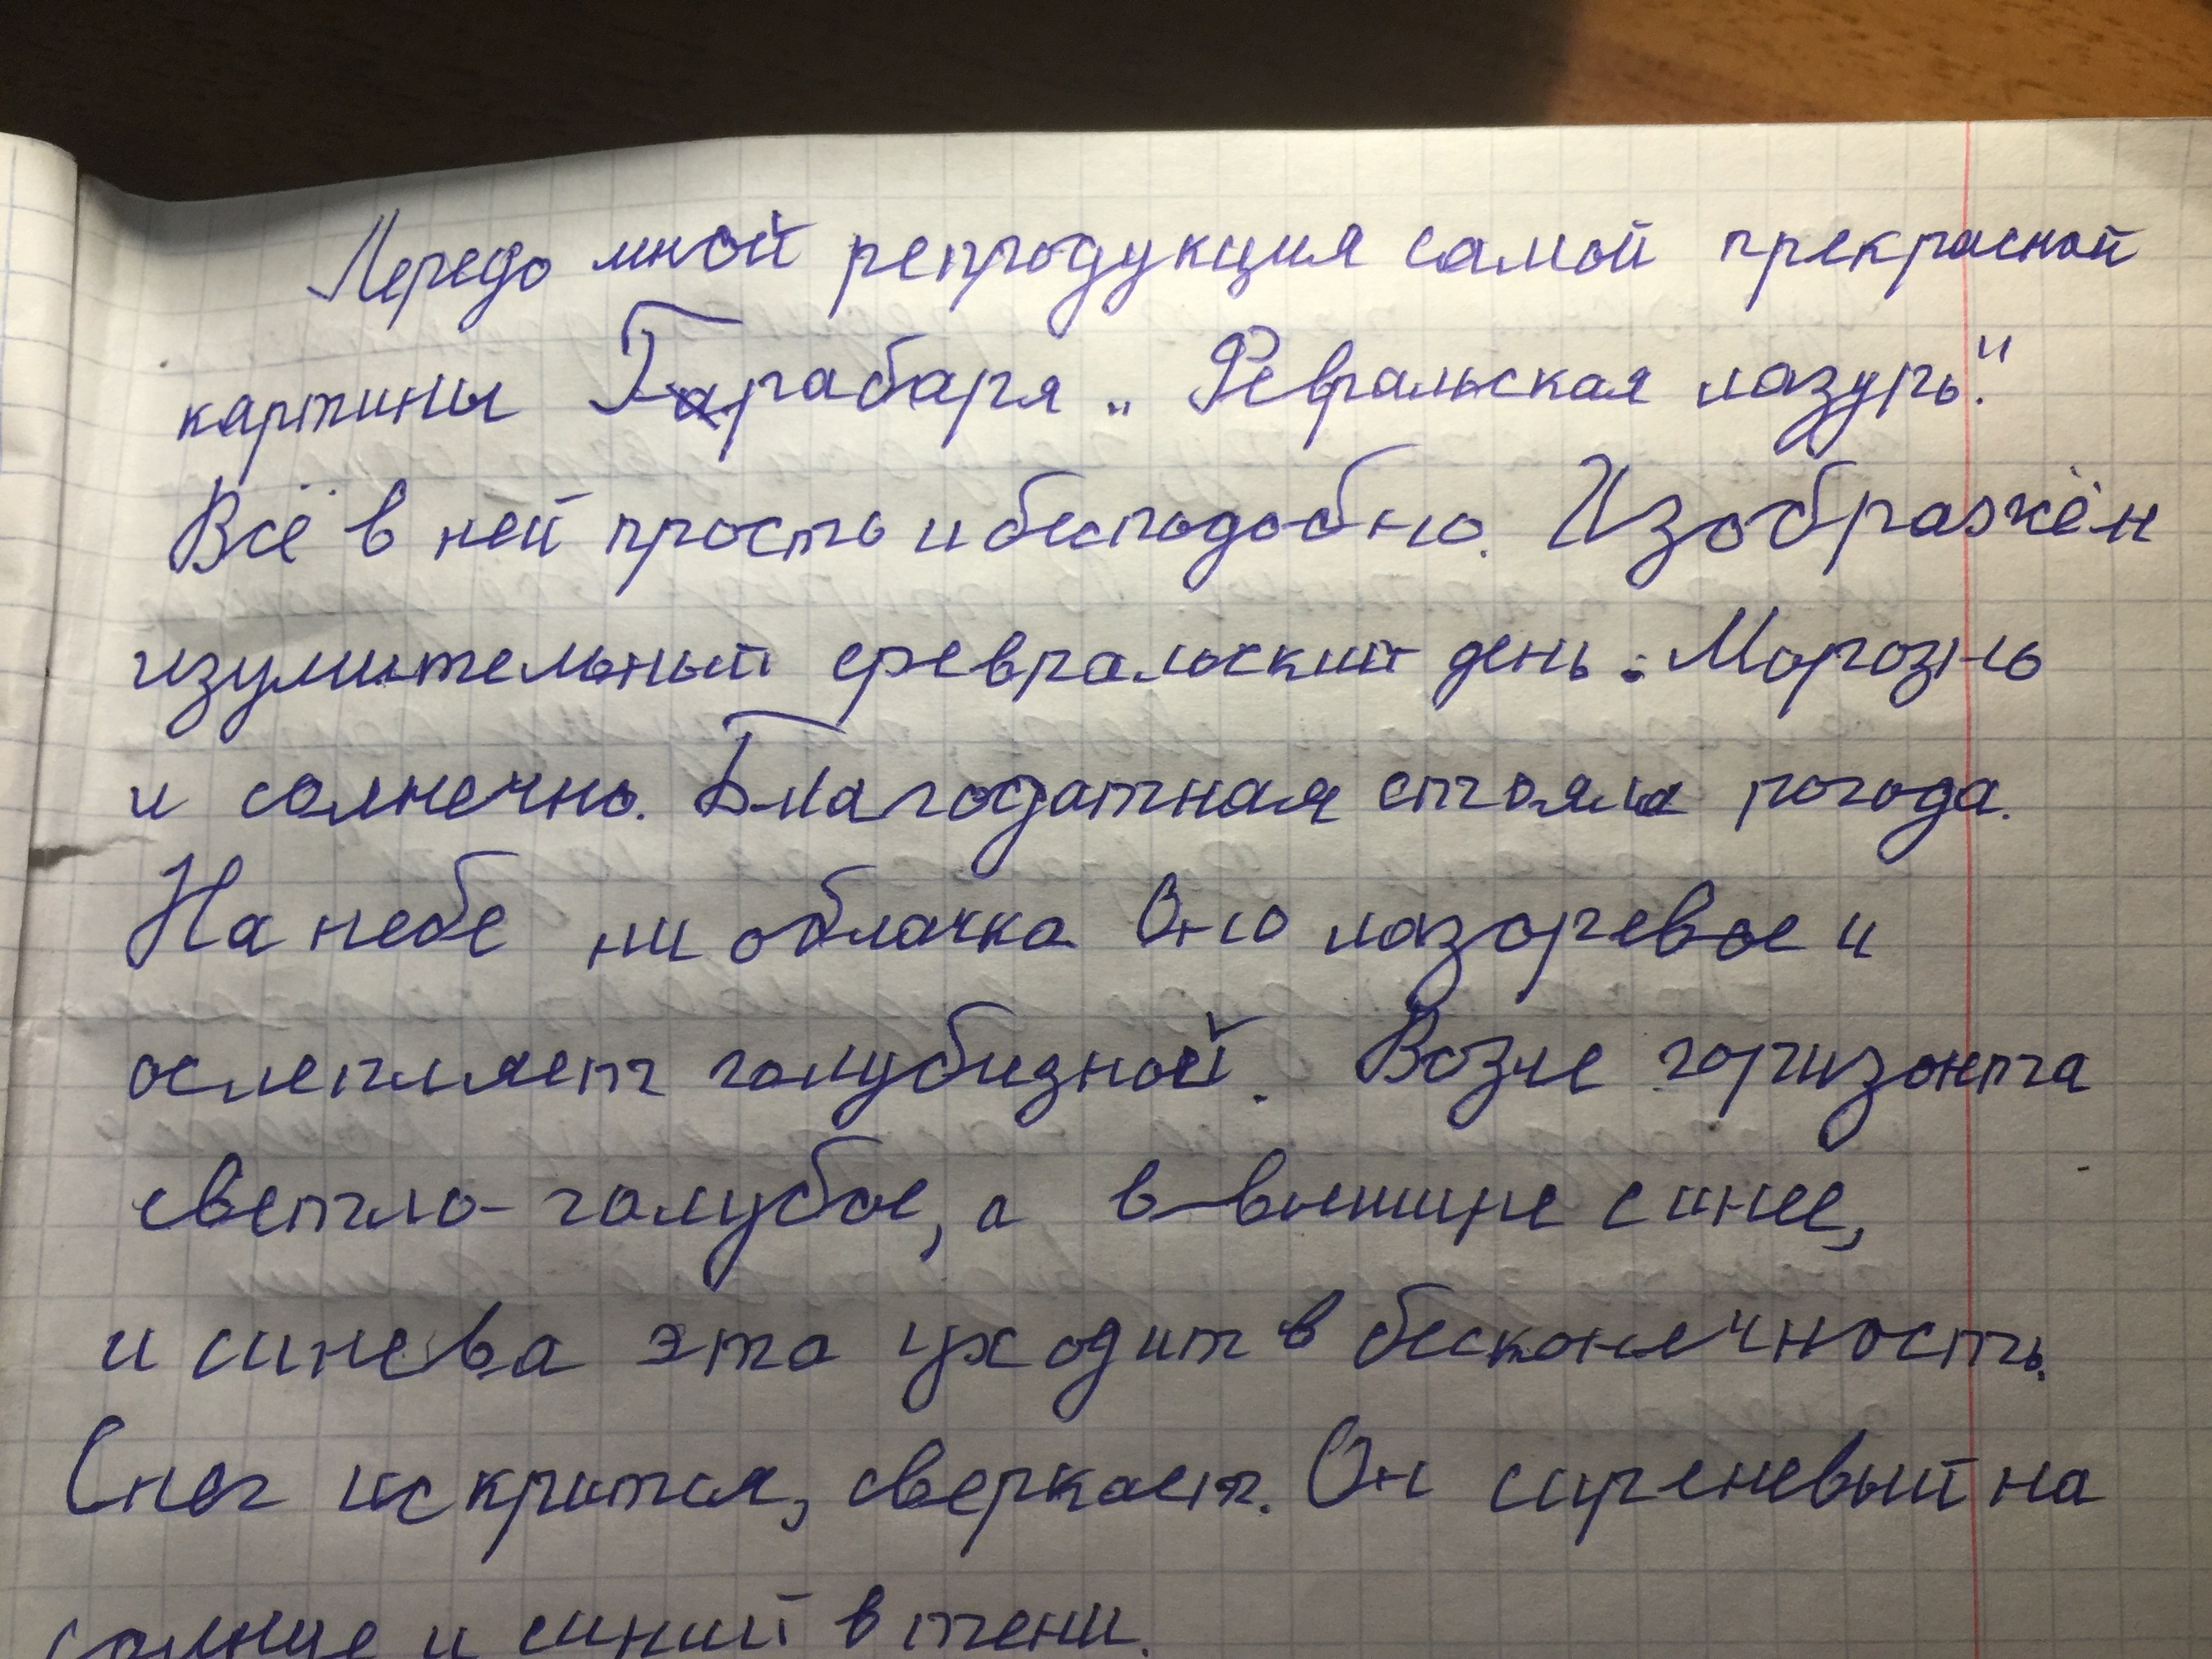 Передо мной репродукция самой прекрасной
картины Грабаря „Февральская лазурь".
Всё в ней просто и бесподобно. Изображён
изумительный февральский день: Морозно
и солнечно. Благодатная стояла погода.
На небе ни облачка. Оно лазоревое и
ослепляет голубизной. Возле горизонта
светло-голубое, а в вышине синее,
и синева эта уходит в бесконечность.
Снег искрится, сверкает. Он сиреневый на
солнце и синий в тени.